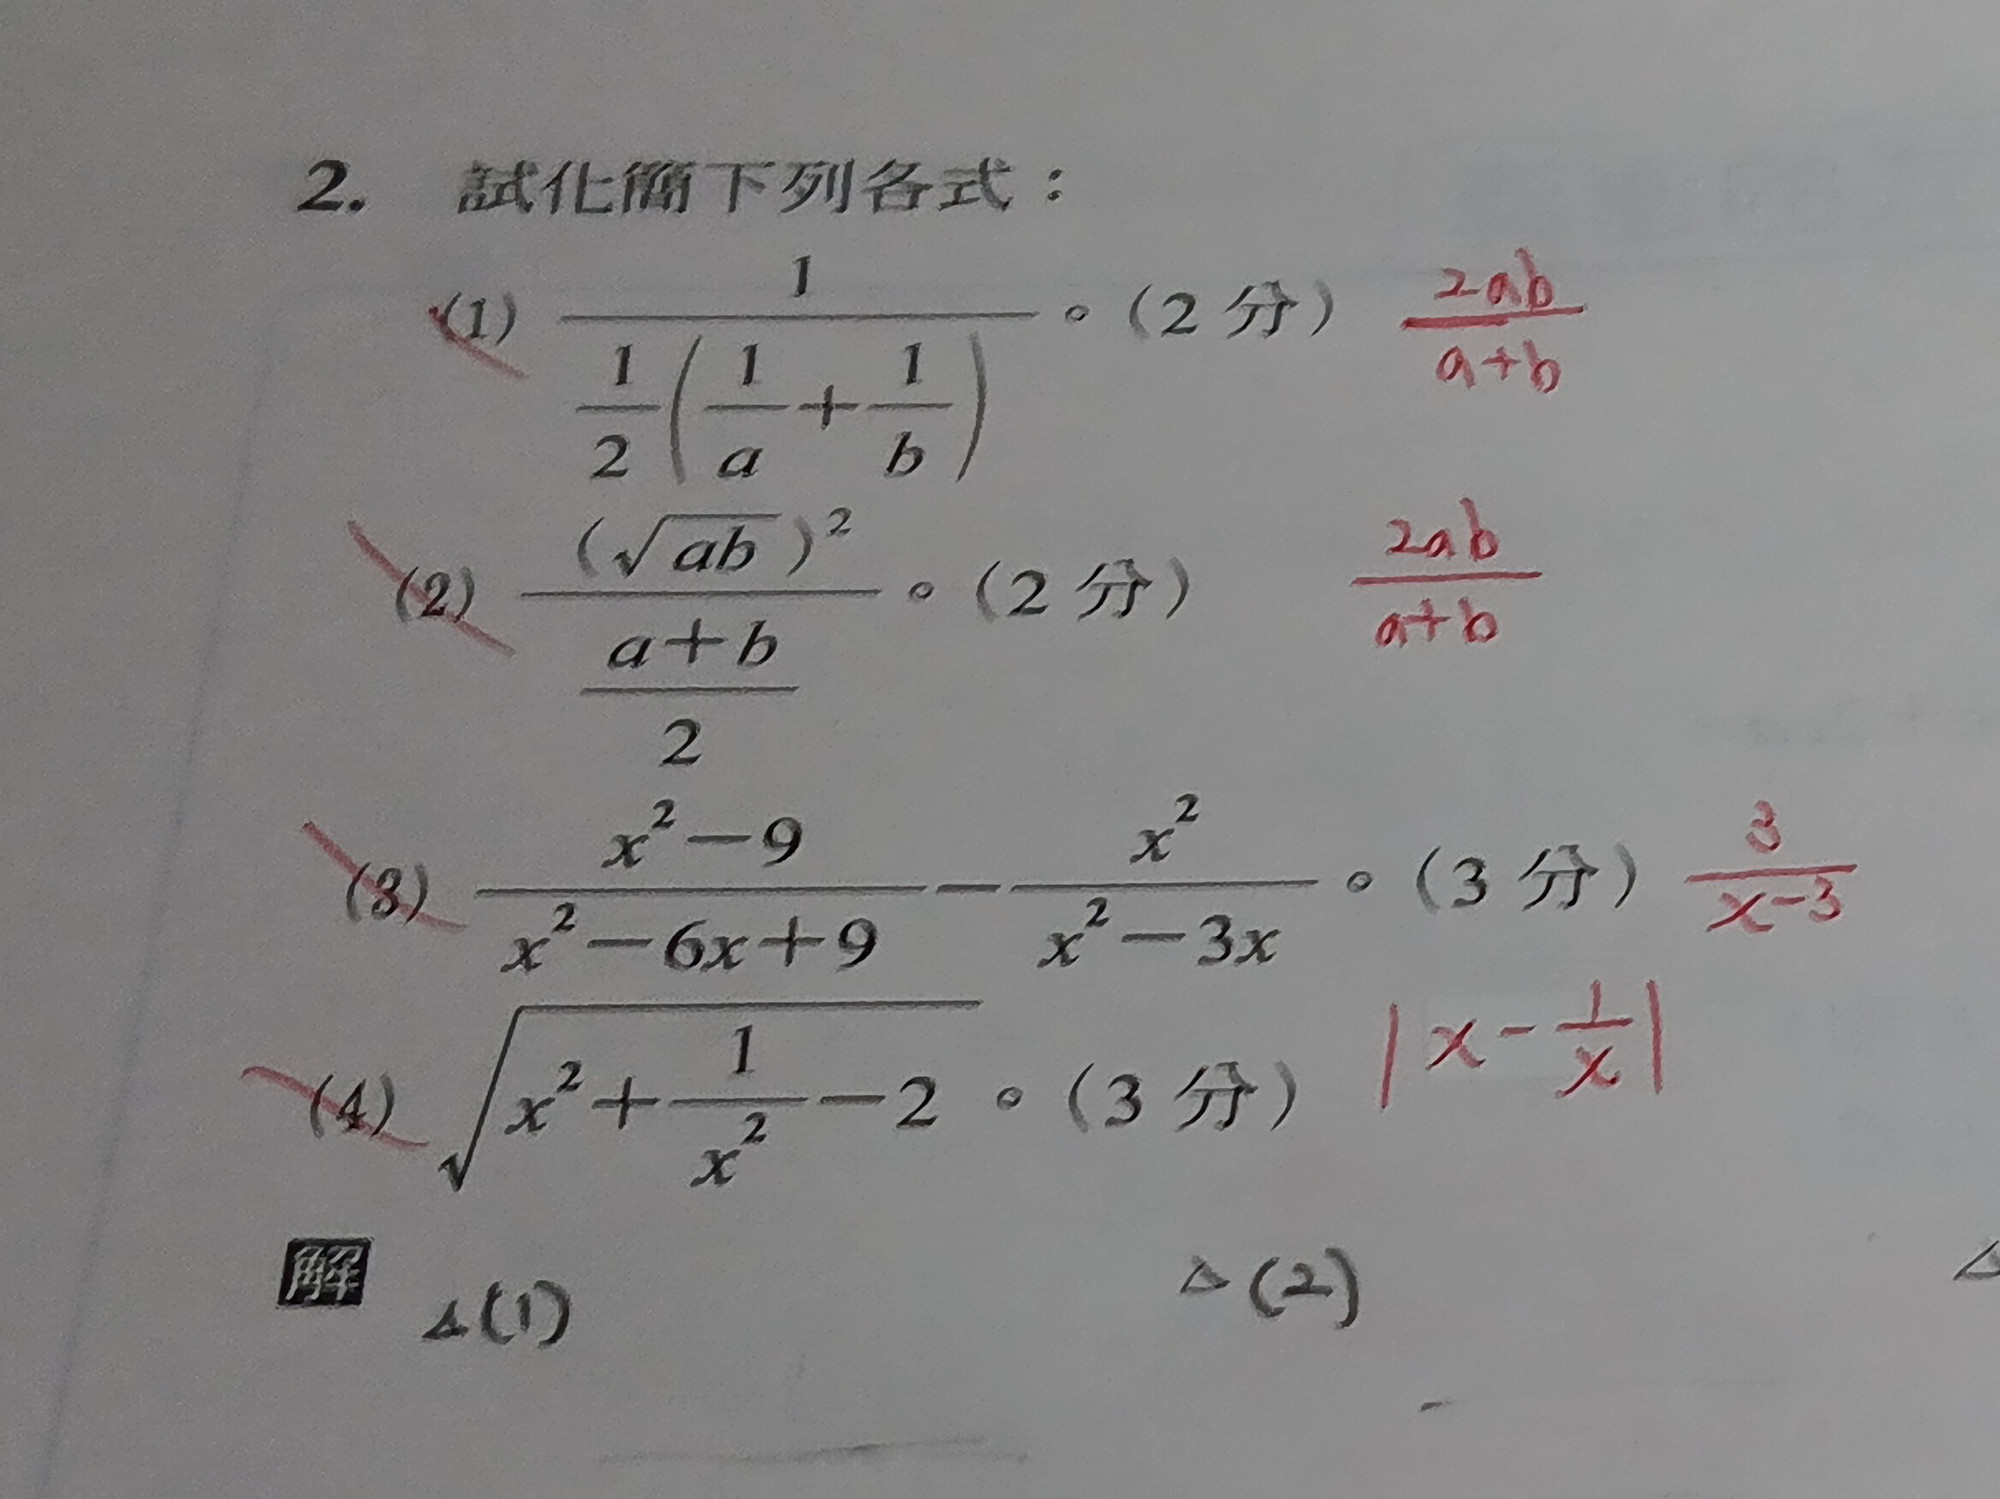 2. 試化簡下列各式：
(1) \frac{1}{\frac{1}{2}\left(\frac{1}{a}+\frac{1}{b}\right)}。(2分) \frac{2ab}{a+b}
(2) \frac{(\sqrt{ab})^2}{\frac{a+b}{2}}。(2分) \frac{2ab}{a+b}
(3) \frac{x^2-9}{x^2-6x+9}-\frac{x^2}{x^2-3x}。(3分) \frac{3}{x-3}
(4) \sqrt{x^2+\frac{1}{x^2}-2}。(3分) \left|x-\frac{1}{x}\right|
解 △(1) △(2) △